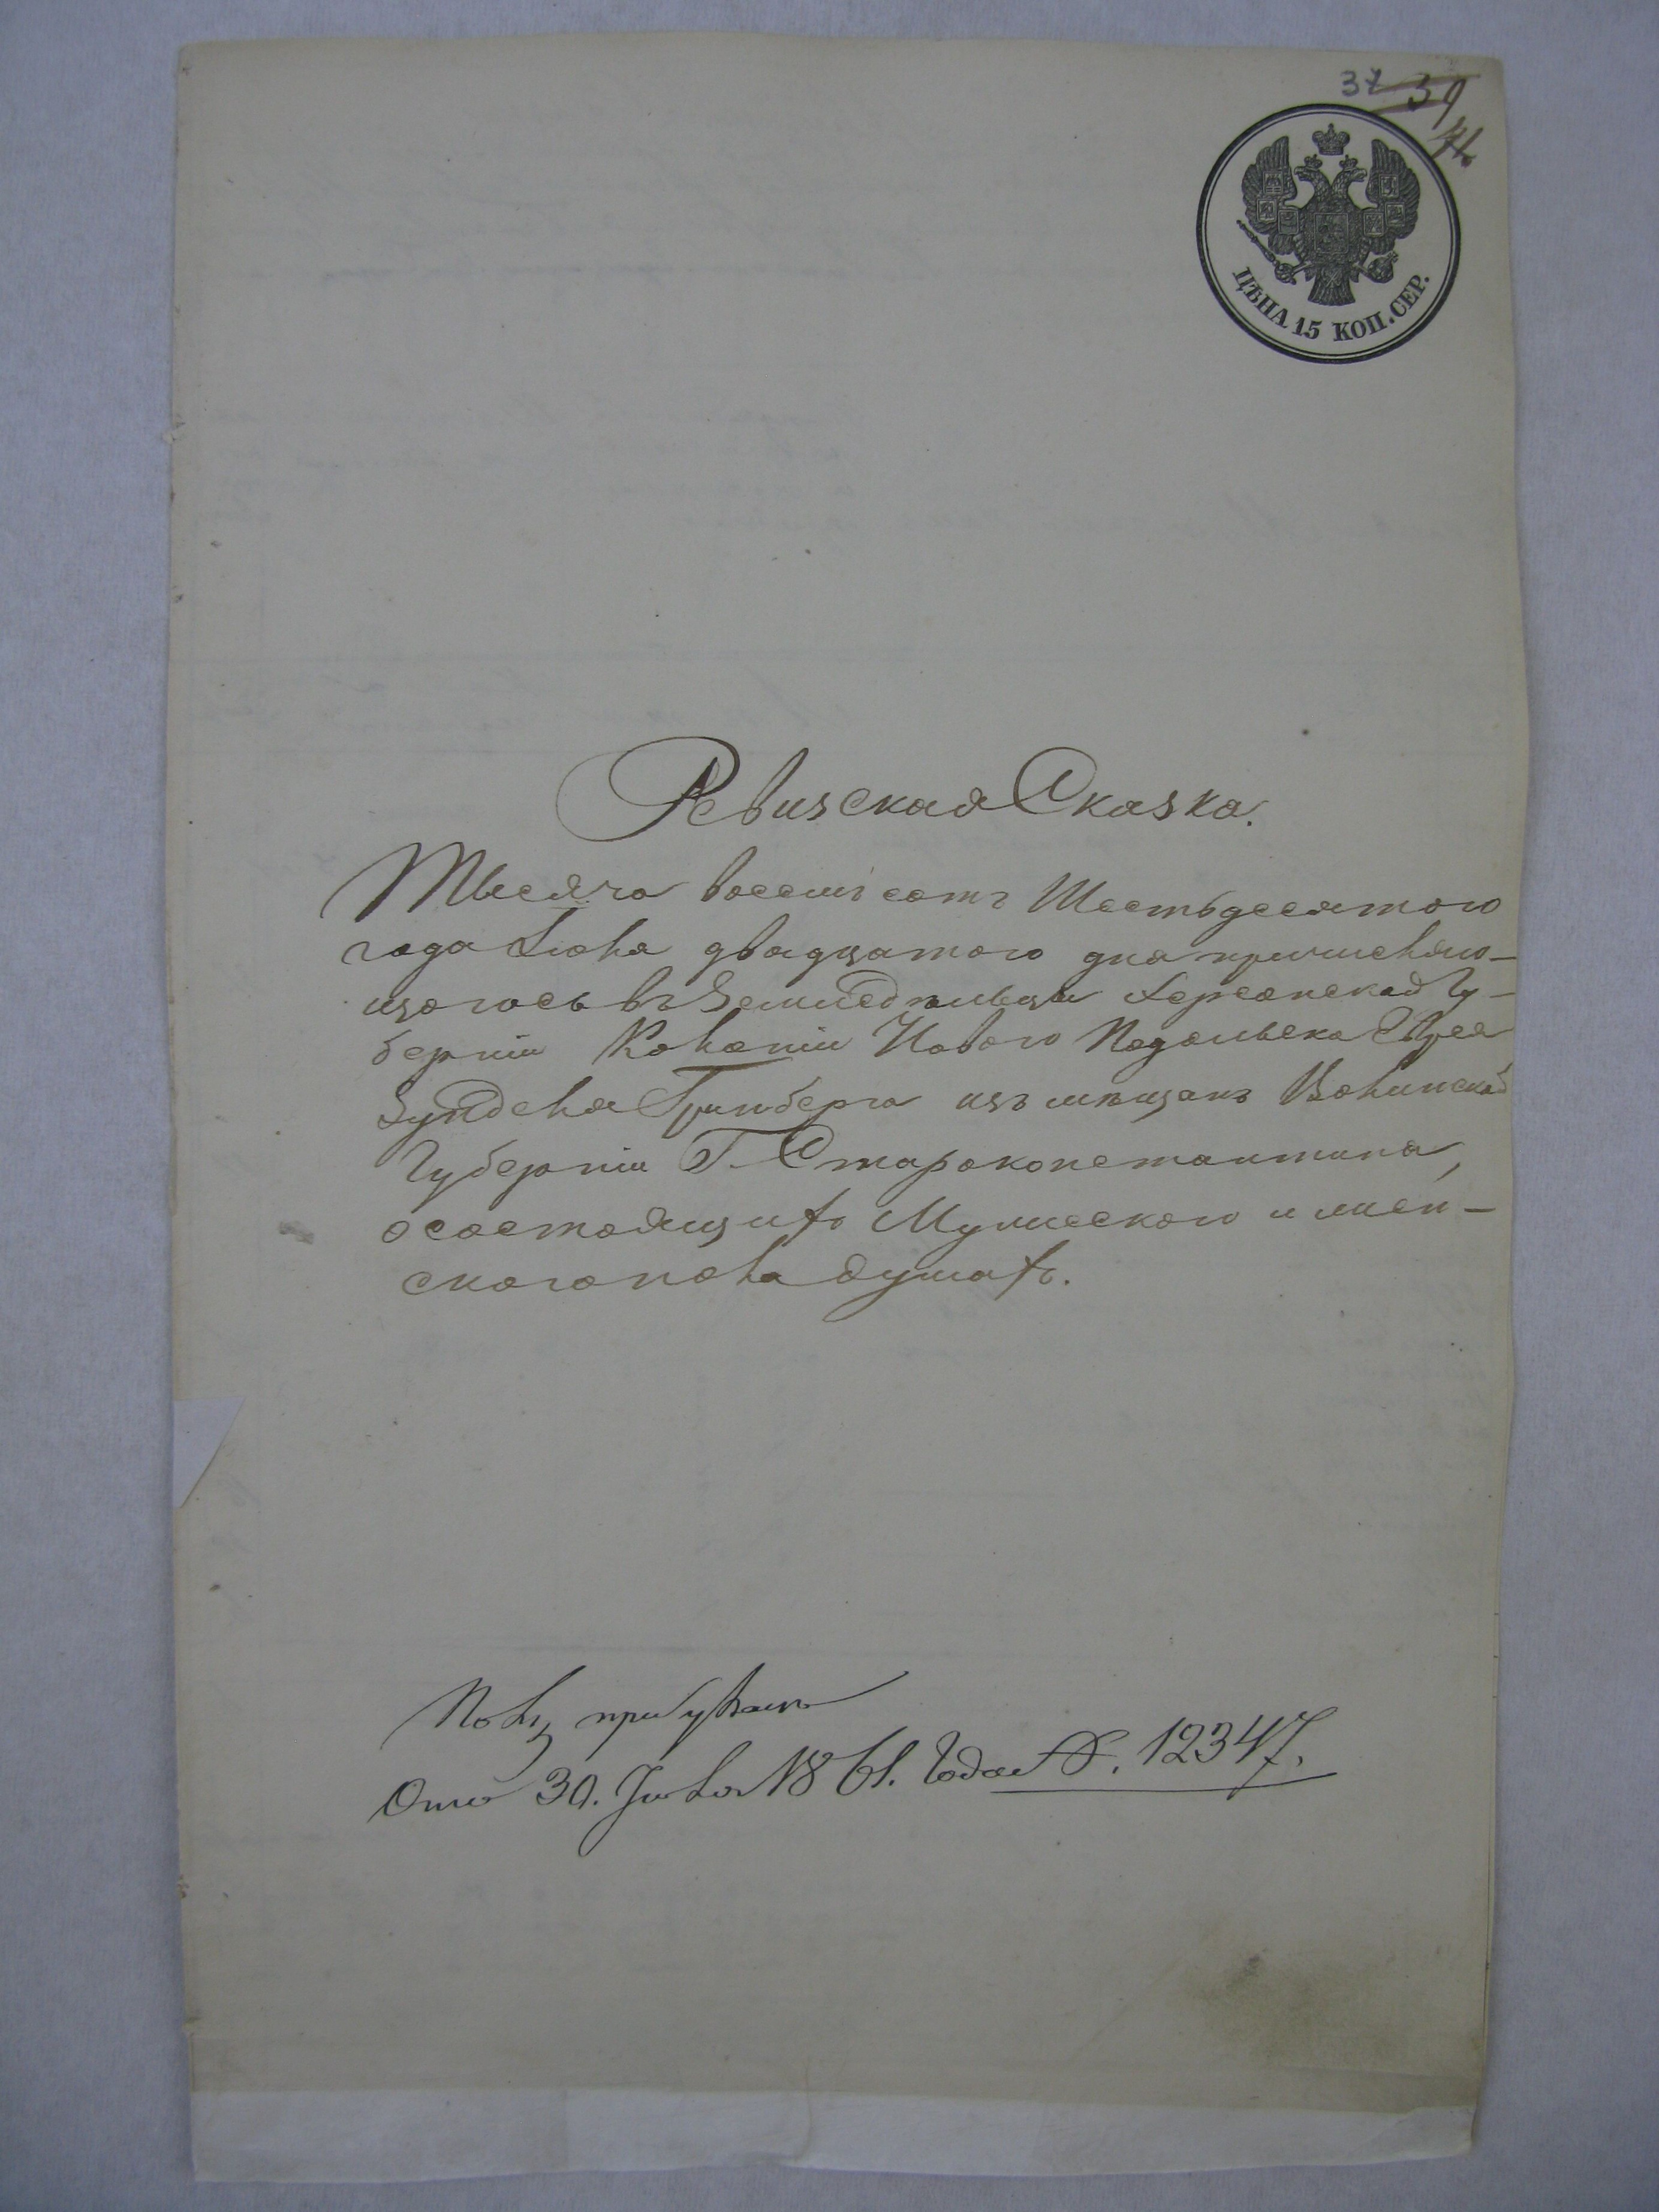 37 39
74
ЦѢНА 15 КОП. СЕР.
Ревизская Сказка.
Тысяча восемь сотъ Шестьдесятого
года Іюля двадцатого дня причисляю-
щогось въ Земледѣльцы Херсонской Гу-
берніи Колоніи Нового Подольска Еврея
Зунделя Гринберга изъ мѣщанъ Волинской
Губерніи Г. Староконстантина,
о состоящихъ Мужеского и жен-
ского пола душахъ.
При указѣ
Отъ 30. Іюля 1861. Года № 12347.